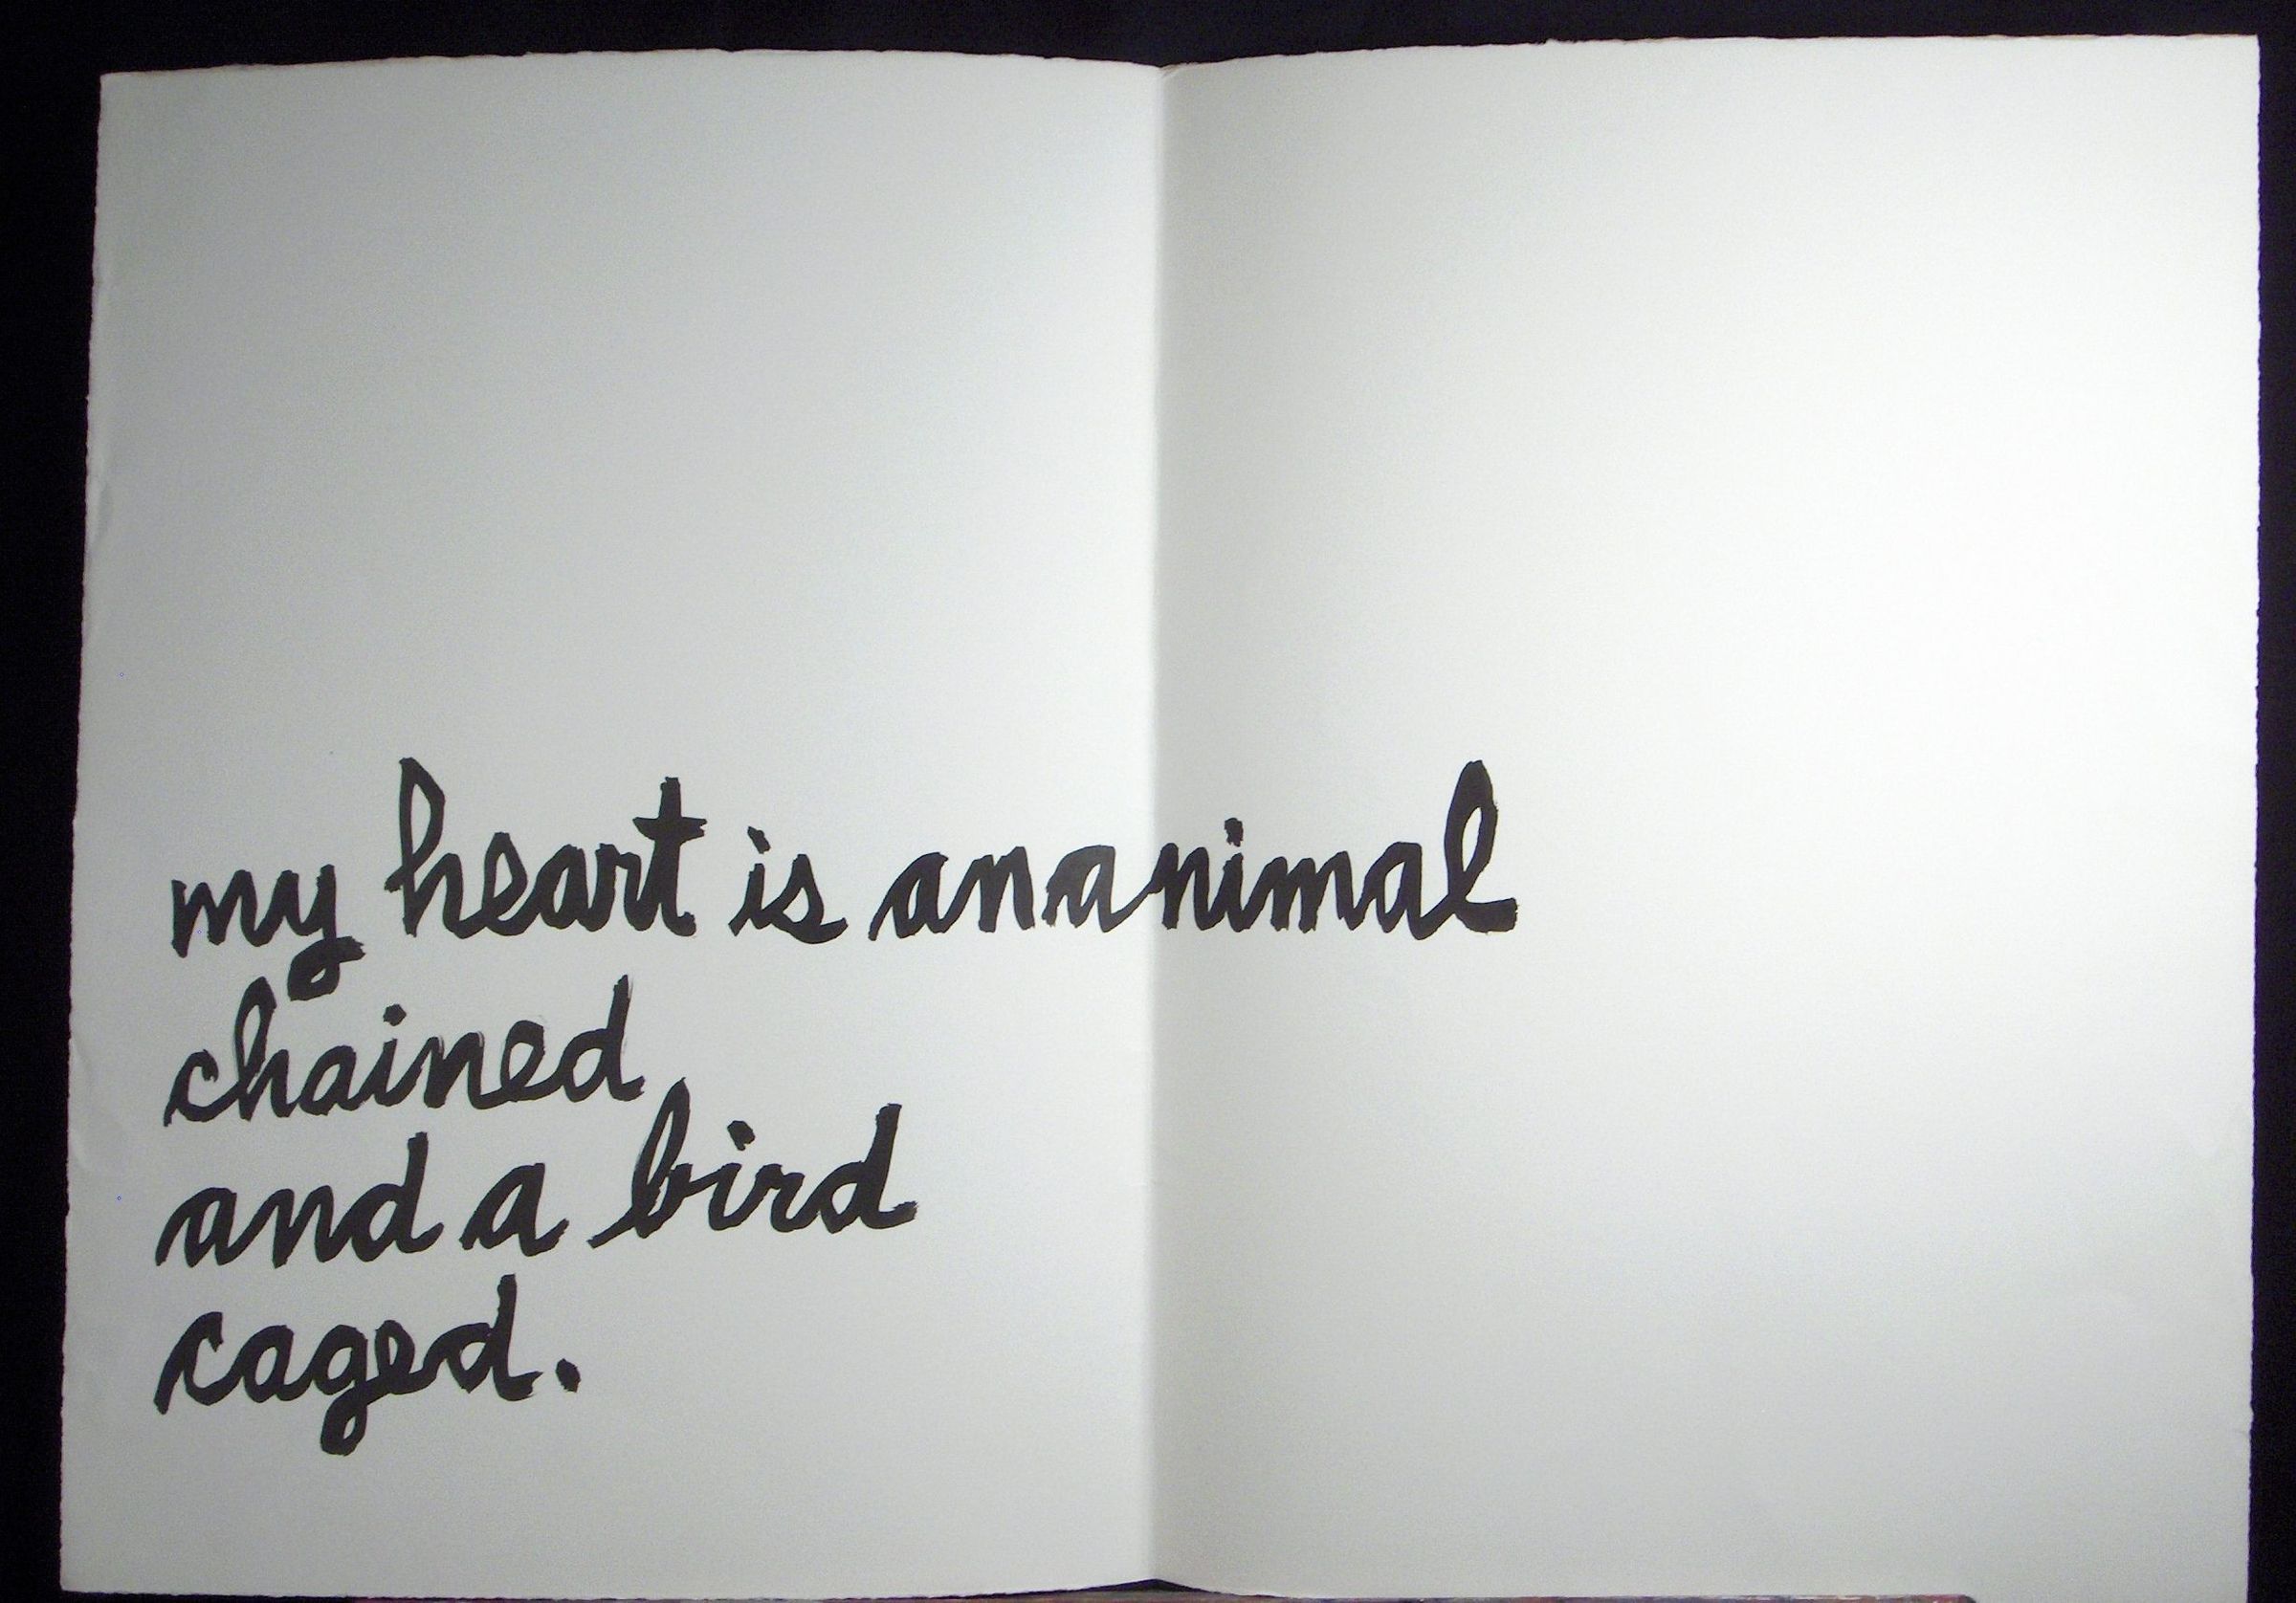 my heart is an animal
chained
and a bird
caged.